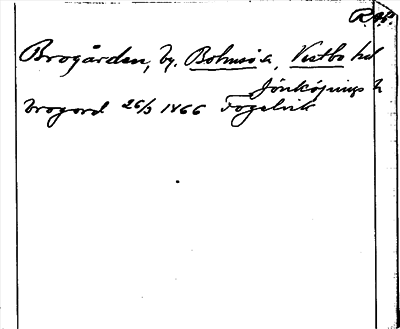 R.Ap.
Brogården, by. Bolmsö sn, Vestbo hd
Jönköpings l.
brogord 26/3 1466 Fogelvik